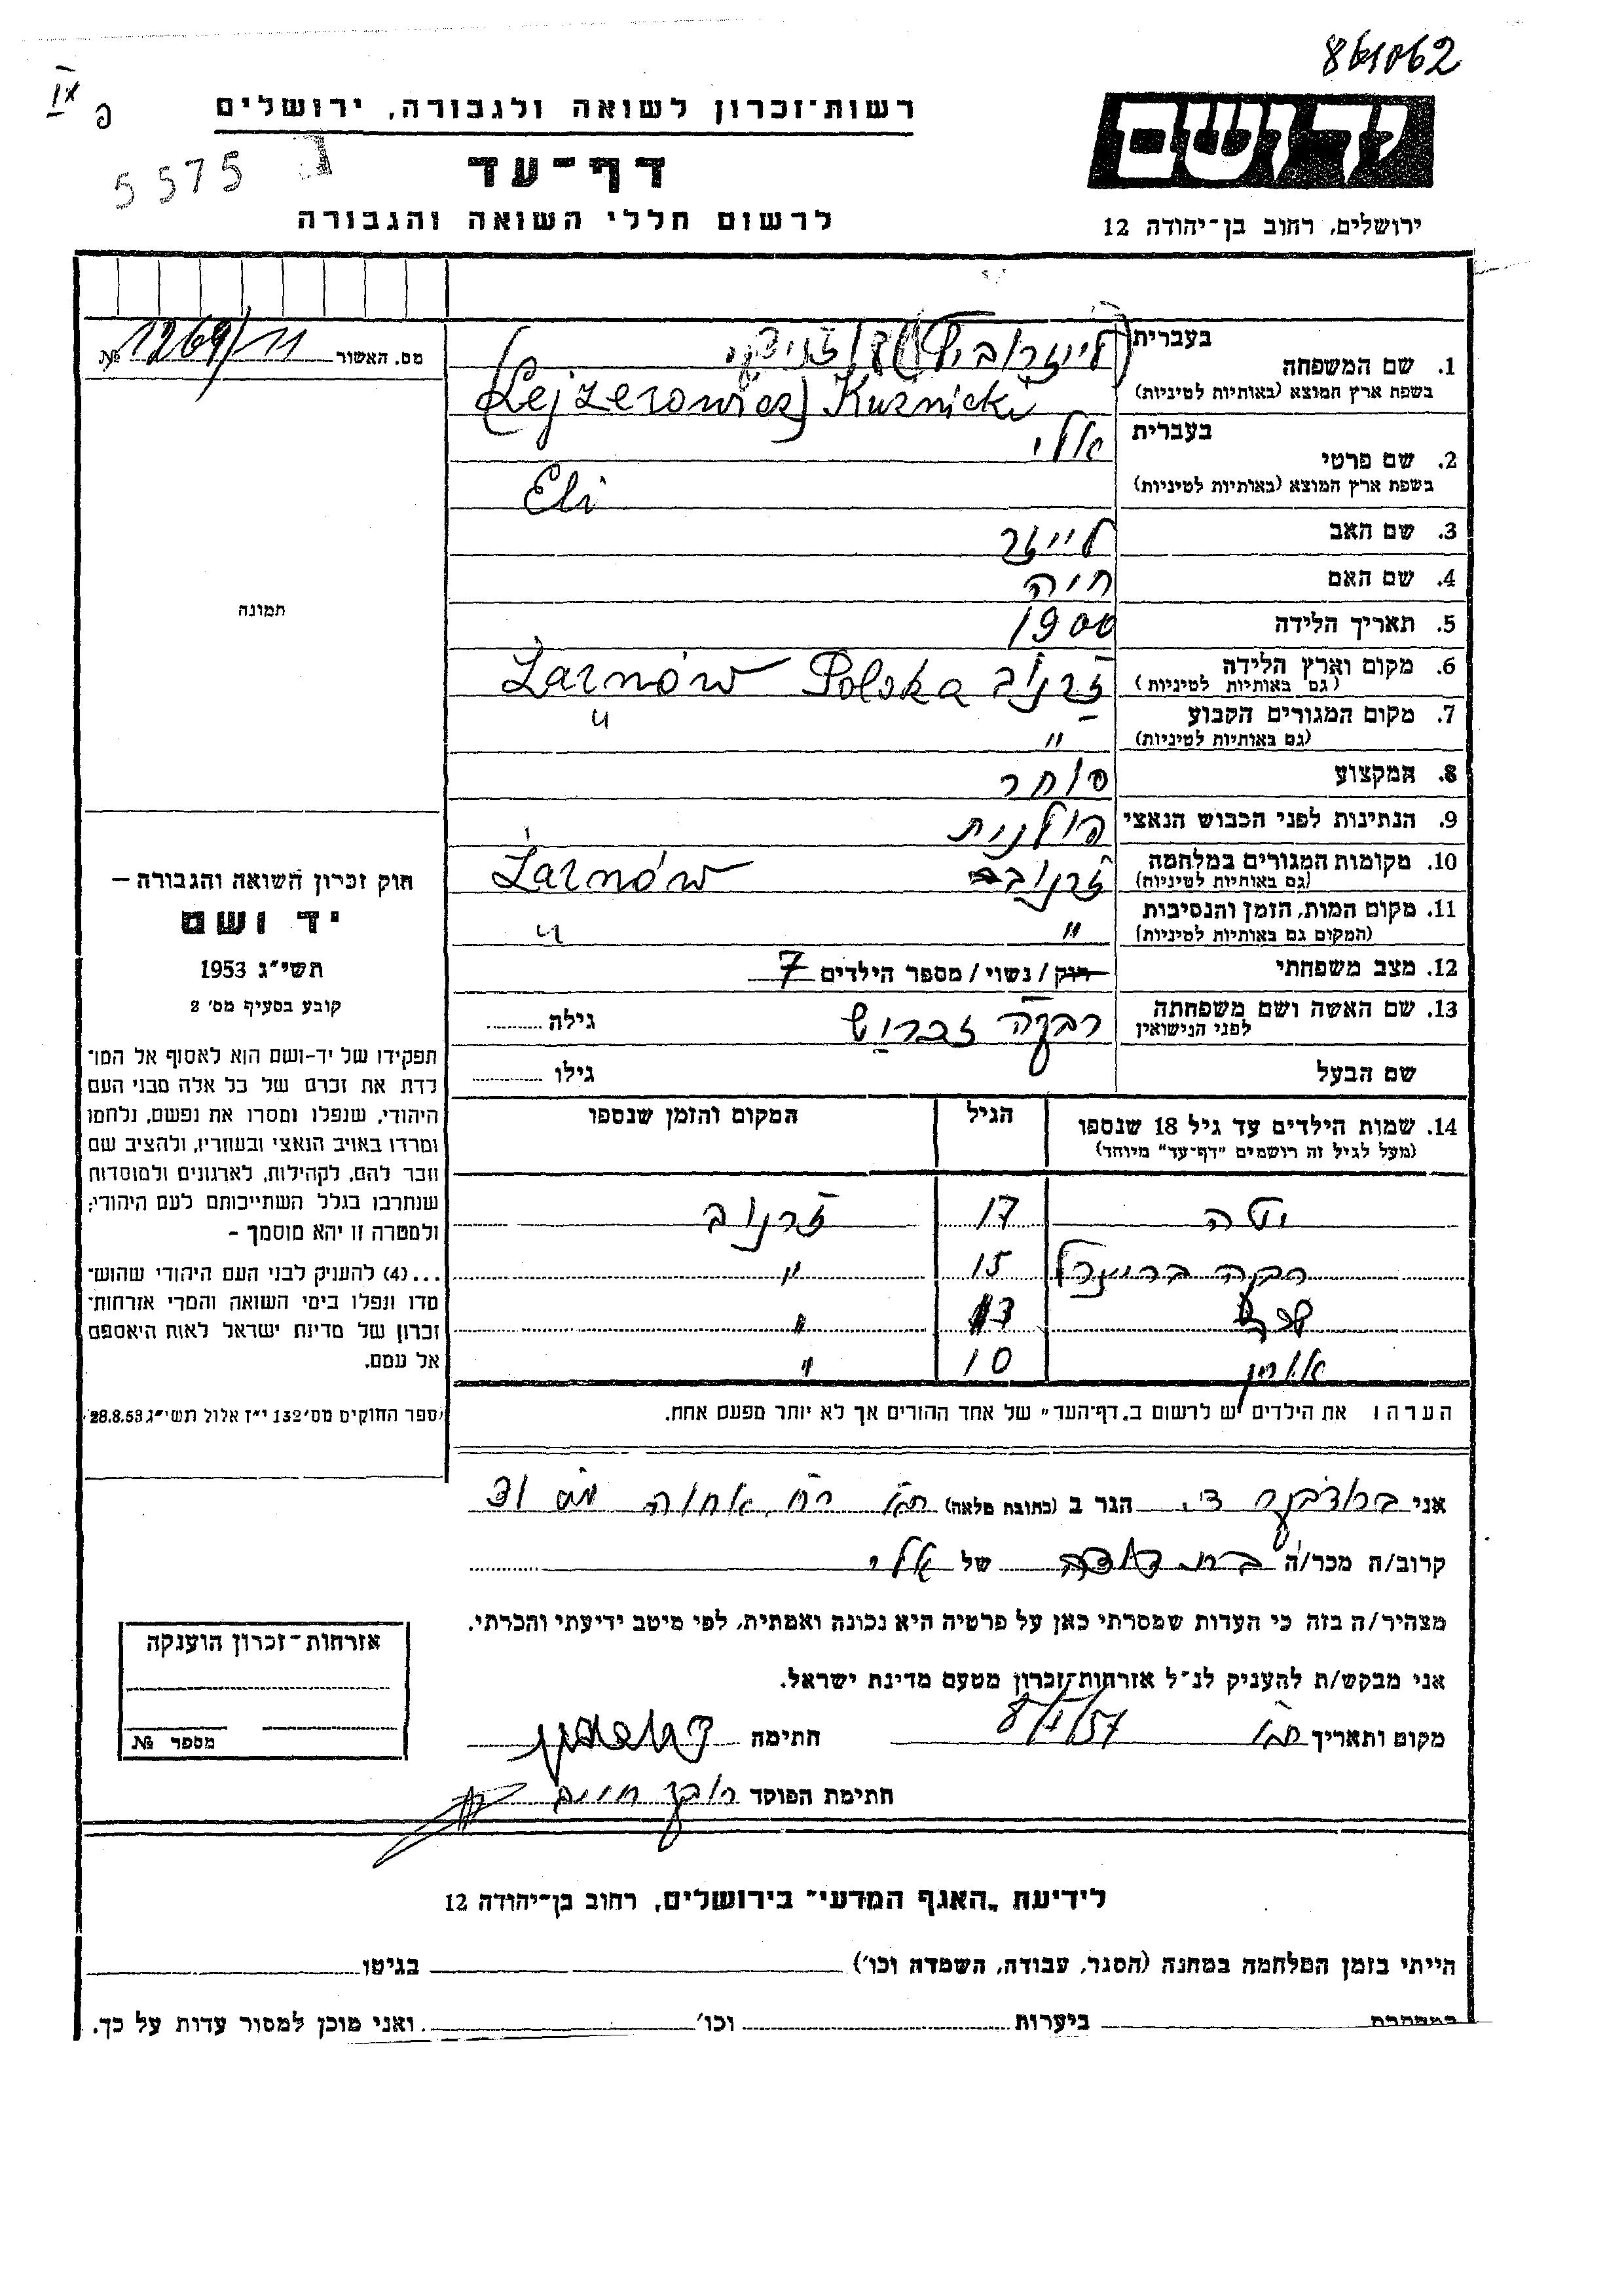 861062
רשות-זכרון לשואה ולגבורה, ירושלים
IX
פ
יד ושם
דף-עד
5575
לרשום חללי השואה והגבורה
ירושלים, רחוב בן-יהודה 12
מס. האשור 1269/11 №
1. שם המשפחה
בעברית (לייזרוביץ)
בשפת ארץ המוצא (באותיות לטיניות) (Lejzerowicz) Kuznicki
2. שם פרטי
בעברית אלי
בשפת ארץ המוצא (באותיות לטיניות) Eli
3. שם האב לייזר
4. שם האם חיה
תמונה
5. תאריך הלידה 1900
6. מקום וארץ הלידה (גם באותיות לטיניות) זרנוב Polska Żarnów
7. מקום המגורים הקבוע (גם באותיות לטיניות) " "
8. המקצוע סוחר
9. הנתינות לפני הכבוש הנאצי פולנית
10. מקומות המגורים במלחמה (גם באותיות לטיניות) זרנוב Żarnów
11. מקום המות, הזמן והנסיבות (המקום גם באותיות לטיניות) " "
12. מצב משפחתי רווק / נשוי / מספר הילדים 7
13. שם האשה ושם משפחתה לפני הנישואין רבקה גילה
שם הבעל גילו
14. שמות הילדים עד גיל 18 שנספו (מעל לגיל זה רושמים "דף-עד" מיוחד) הגיל המקום והזמן שנספו
יטה 17 זרנוב
רבקה 15 "
13 "
אהרון 10 "
הערה: את הילדים יש לרשום ב"דף-העד" של אחד ההורים אך לא יותר מפעם אחת.
חוק זכרון השואה והגבורה –
יד ושם
תשי"ג 1953
קובע בסעיף מס' 2
תפקידו של יד-ושם הוא לאסוף אל המו־
לדת את זכרם של כל אלה מבני העם
היהודי, שנפלו ומסרו את נפשם, נלחמו
ומרדו באויב הנאצי ובעוזריו, ולהציב שם
וזכר להם, לקהילות, לארגונים ולמוסדות
שנחרבו בגלל השתייכותם לעם היהודי;
ולמטרה זו יהא מוסמך –
...(4) להעניק לבני העם היהודי שהוש־
מדו ונפלו בימי השואה והמרי אזרחות־
זכרון של מדינת ישראל לאות היאספם
אל עמם.
(ספר החוקים מס' 132 י"ז אלול תשי"ג 28.8.53)
אני ד. הגר ב (כתובת מלאה) ת"א רח' אחוה מס
קרוב/ה מכר/ה בת דודה של אלי
מצהיר/ה בזה כי העדות שמסרתי כאן על פרטיה היא נכונה ואמתית, לפי מיטב ידיעתי והכרתי.
אני מבקש/ת להעניק לנ"ל אזרחות-זכרון מטעם מדינת ישראל.
מקום ותאריך ת"א 8/V/57 חתימה
חתימת הפוקד חיים
אזרחות-זכרון הוענקה
מספר №
לידיעת "האגף המדעי" בירושלים, רחוב בן-יהודה 12
הייתי בזמן המלחמה במחנה (הסגר, עבודה, השמדה וכו') בגיטו
במחתרת ביערות וכו' ואני מוכן למסור עדות על כך.